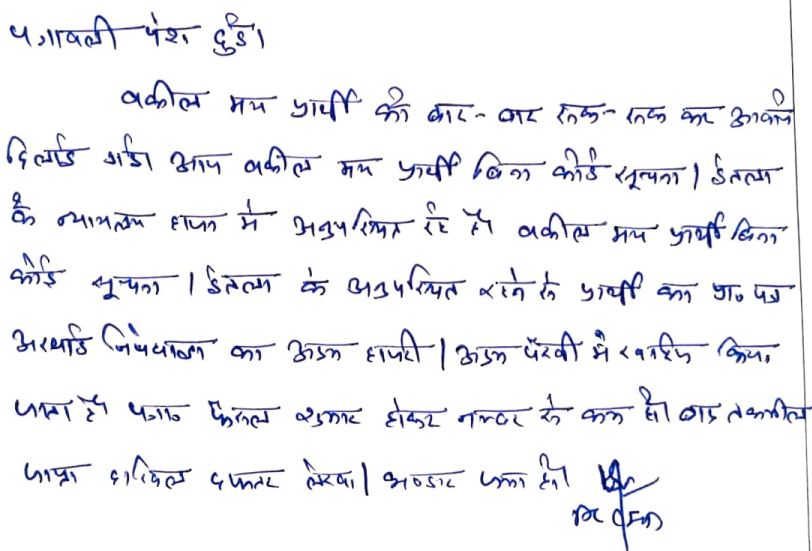 पत्रावली पेश हुई।
वकील मय प्रार्थी को बार-बार रूक-रूक कर आवाजें
दिलाई गई। आप वकील मय प्रार्थी बिना कोई सूचना / ईतला
के न्यायालय हाजा में अनुपस्थित रहे है। वकील मय प्रार्थी बिना
कोई सूचना / ईतला के अनुपस्थित रहने से प्रार्थी का प्रा० पत्र
अस्थाई निषेधाज्ञा का अदम हाजरी / अदम पैरवी में खारिज किया
जाता है। पत्रा० फैसल शुमार होकर नम्बर से कम हो। बाद तकमील
जाप्ता दाखिल दफ्तर लेखा / भण्डार जमा हो।